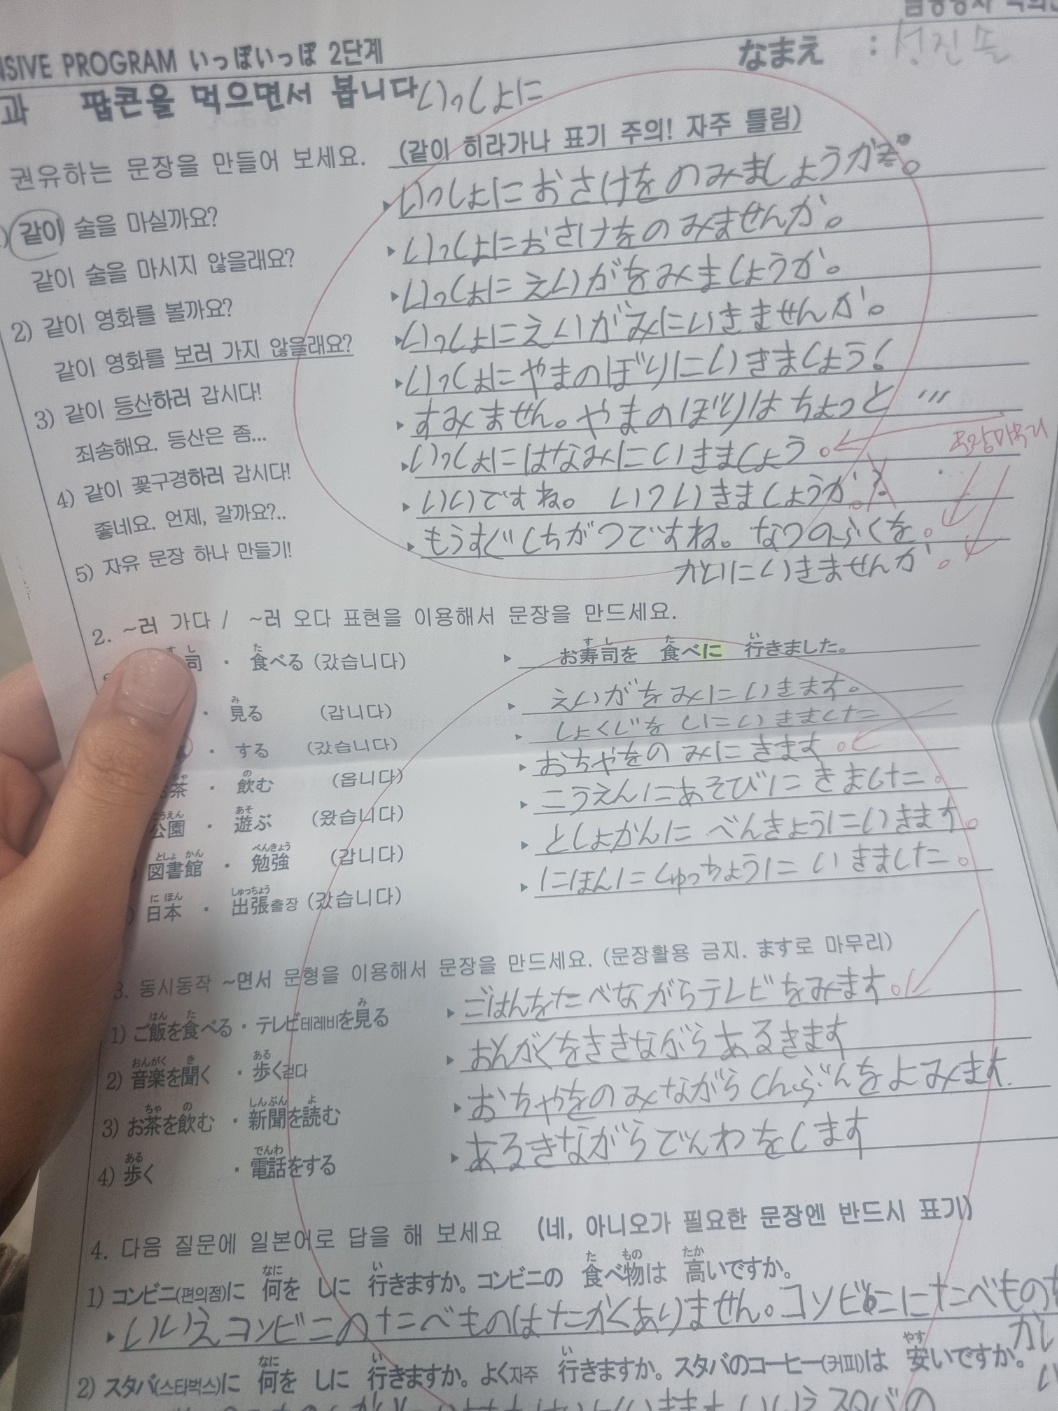 SIVE PROGRAM いっぽいっぽ 2단계
なまえ :
과 팝콘을 먹으면서 봅니다 いっしょに
권유하는 문장을 만들어 보세요. (같이 히라가나 표기 주의! 자주 틀림)
같이 술을 마실까요? いっしょにおさけをのみましょうか。
같이 술을 마시지 않을래요? いっしょにおさけをのみませんか。
2) 같이 영화를 볼까요? いっしょにえいがをみましょうか。
같이 영화를 보러 가지 않을래요? いっしょにえいがみにいきませんか。
3) 같이 등산하러 갑시다! いっしょにやまのぼりにいきましょう!
죄송해요. 등산은 좀... すみません。やまのぼりはちょっと…
4) 같이 꽃구경하러 갑시다! いっしょにはなみにいきましょう。
좋네요. 언제, 갈까요?.. いいですね。いついきましょうか
5) 자유 문장 하나 만들기! もうすぐしちがつですね。なつのふくを
かいにいきませんか。
2. ~러 가다 / ~러 오다 표현을 이용해서 문장을 만드세요.
司 · 食べる (갔습니다) お寿司を 食べに 行きました。
· 見る (갑니다) えいがをみにいきます。
· する (갔습니다) しょくじをしにいきました
茶 · 飲む (옵니다) おちゃをのみにきます。
公園 · 遊ぶ (왔습니다) こうえんにあそびにきました。
図書館 · 勉強 (갑니다) としょかんにべんきょうにいきます。
日本 · 出張출장 (갔습니다) にほんにしゅっちょうにいきました。
3. 동시동작 ~면서 문형을 이용해서 문장을 만드세요. (문장활용 금지. ます로 마무리)
1) ご飯を食べる · テレビ테레비を見る ごはんをたべながらテレビをみます。
2) 音楽を聞く · 歩く걷다 おんがくをききながらあるきます
3) お茶を飲む · 新聞を読む おちゃをのみながらしんぶんをよみます.
4) 歩く · 電話をする あるきながらでんわをします
4. 다음 질문에 일본어로 답을 해 보세요 (네, 아니오가 필요한 문장엔 반드시 표기)
1) コンビニ(편의점)に 何を しに 行きますか。コンビニの 食べ物は 高いですか。
いいえコンビニのたべものはたかくありません。コンビニにたべものを
かい
2) スタバ(스타벅스)に 何を しに 行きますか。よく자주 行きますか。スタバのコーヒー(커피)は 安いですか。